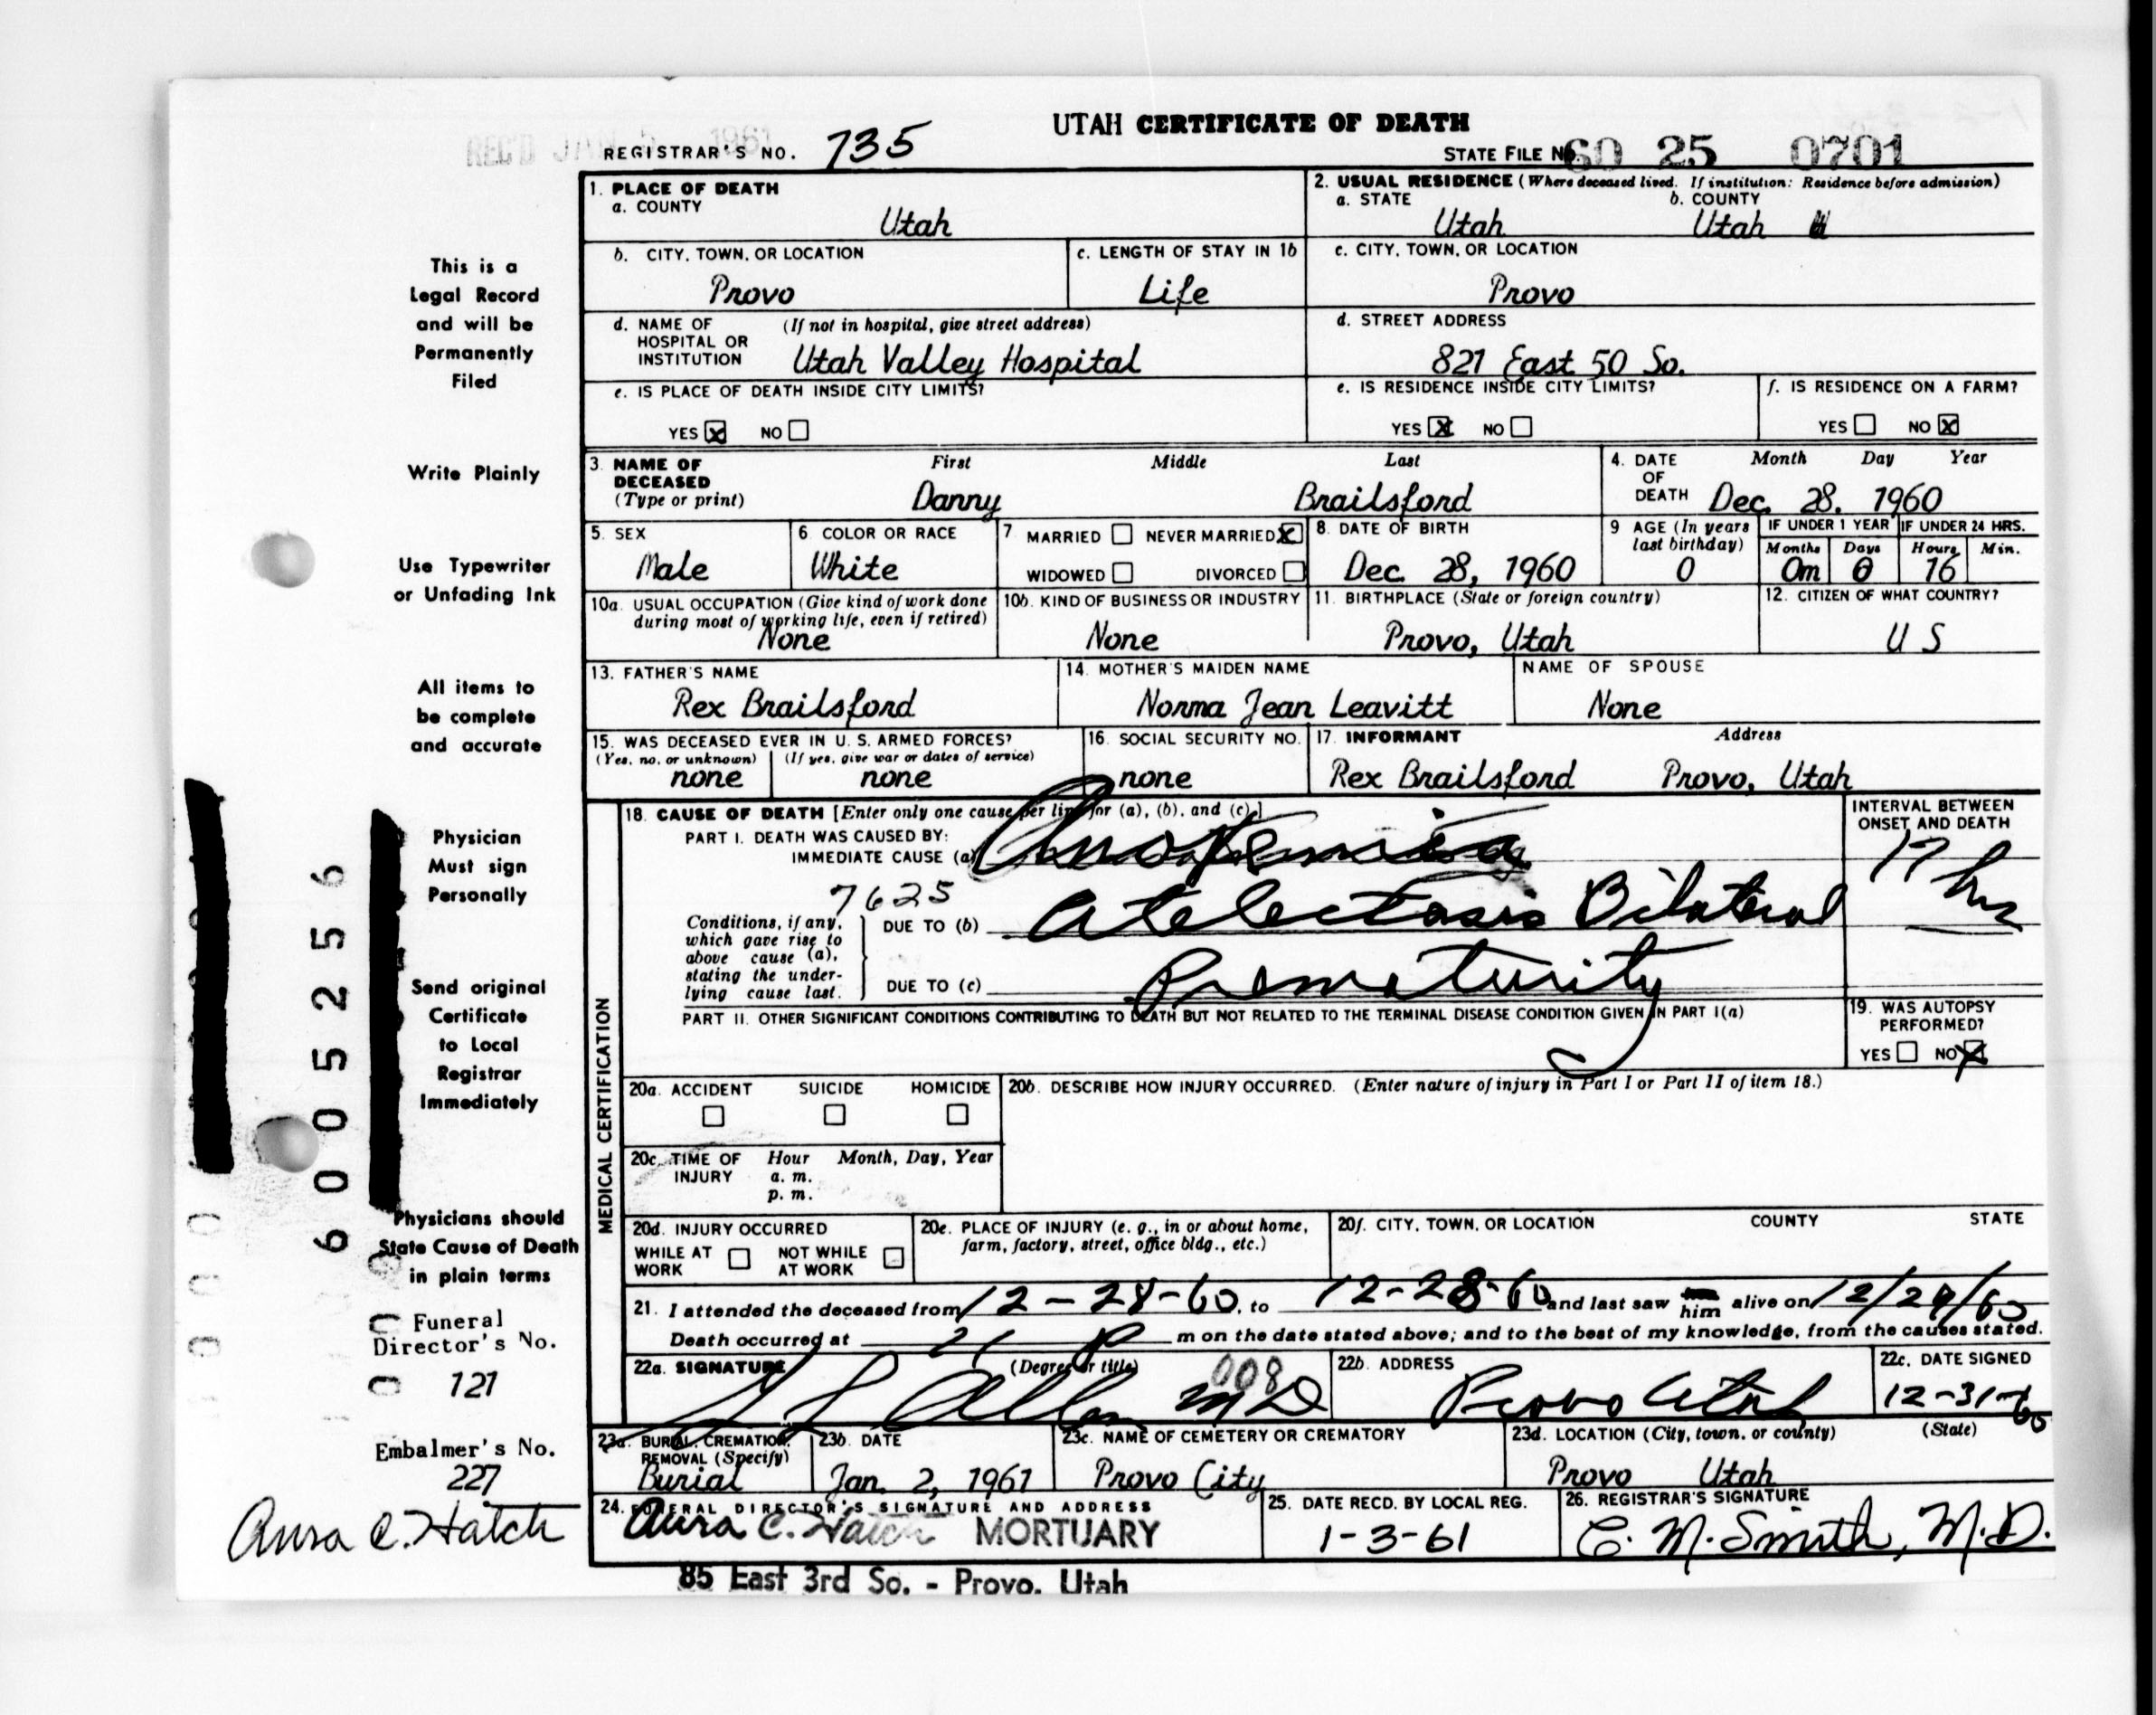 UTAH CERTIFICATE OF DEATH
REC'D JAN 5 1961
REGISTRAR'S NO. 735
STATE FILE NO. 60 25 0701
This is a
Legal Record
and will be
Permanently
Filed
Write Plainly
Use Typewriter
or Unfading Ink
All items to
be complete
and accurate
Physician
Must sign
Personally
Send original
Certificate
to Local
Registrar
Immediately
Physicians should
State Cause of Death
in plain terms
Funeral
Director's No.
121
Embalmer's No.
227
Aura C. Hatch
6005256
1. PLACE OF DEATH
a. COUNTY
Utah
2. USUAL RESIDENCE (Where deceased lived. If institution: Residence before admission)
a. STATE b. COUNTY
Utah Utah
b. CITY, TOWN, OR LOCATION
Provo
c. LENGTH OF STAY IN 1b
Life
c. CITY, TOWN, OR LOCATION
Provo
d. NAME OF (If not in hospital, give street address)
HOSPITAL OR
INSTITUTION Utah Valley Hospital
d. STREET ADDRESS
821 East 50 So.
e. IS PLACE OF DEATH INSIDE CITY LIMITS?
YES X NO
e. IS RESIDENCE INSIDE CITY LIMITS?
YES X NO
f. IS RESIDENCE ON A FARM?
YES NO X
3. NAME OF DECEASED (Type or print)
First Middle Last
Danny Brailsford
4. DATE OF DEATH
Month Day Year
Dec. 28, 1960
5. SEX
Male
6 COLOR OR RACE
White
7 MARRIED NEVER MARRIED X
WIDOWED DIVORCED
8. DATE OF BIRTH
Dec. 28, 1960
9 AGE (In years last birthday)
0
IF UNDER 1 YEAR IF UNDER 24 HRS.
Months Days Hours Min.
0m 0 16
10a. USUAL OCCUPATION (Give kind of work done
during most of working life, even if retired)
None
10b. KIND OF BUSINESS OR INDUSTRY
None
11. BIRTHPLACE (State or foreign country)
Provo, Utah
12. CITIZEN OF WHAT COUNTRY?
U S
13. FATHER'S NAME
Rex Brailsford
14. MOTHER'S MAIDEN NAME
Norma Jean Leavitt
NAME OF SPOUSE
None
15. WAS DECEASED EVER IN U. S. ARMED FORCES?
(Yes, no, or unknown) (If yes, give war or dates of service)
none none
16. SOCIAL SECURITY NO.
none
17. INFORMANT Address
Rex Brailsford Provo, Utah
MEDICAL CERTIFICATION
18. CAUSE OF DEATH [Enter only one cause per line for (a), (b), and (c).]
PART I. DEATH WAS CAUSED BY:
IMMEDIATE CAUSE (a) Anoxemia
INTERVAL BETWEEN
ONSET AND DEATH
17 hrs
7625
Conditions, if any,
which gave rise to
above cause (a),
stating the under-
lying cause last.
DUE TO (b) Atelectasis Bilateral
DUE TO (c) Prematurity
PART II. OTHER SIGNIFICANT CONDITIONS CONTRIBUTING TO DEATH BUT NOT RELATED TO THE TERMINAL DISEASE CONDITION GIVEN IN PART I(a)
19. WAS AUTOPSY
PERFORMED?
YES NO X
20a. ACCIDENT SUICIDE HOMICIDE
20b. DESCRIBE HOW INJURY OCCURRED. (Enter nature of injury in Part I or Part II of item 18.)
20c. TIME OF INJURY
Hour Month, Day, Year
a. m.
p. m.
20d. INJURY OCCURRED
WHILE AT WORK NOT WHILE AT WORK
20e. PLACE OF INJURY (e. g., in or about home,
farm, factory, street, office bldg., etc.)
20f. CITY, TOWN, OR LOCATION COUNTY STATE
21. I attended the deceased from 12-28-60, to 12-28-60 and last saw him alive on 12/28/60
Death occurred at p m on the date stated above; and to the best of my knowledge, from the causes stated.
22a. SIGNATURE (Degree or title) 008
Allen MD
22b. ADDRESS
Provo Utah
22c. DATE SIGNED
12-31-60
23a. BURIAL, CREMATION,
REMOVAL (Specify)
Burial
23b. DATE
Jan. 2, 1961
23c. NAME OF CEMETERY OR CREMATORY
Provo City
23d. LOCATION (City, town, or county) (State)
Provo Utah
24. FUNERAL DIRECTOR'S SIGNATURE AND ADDRESS
Aura C. Hatch MORTUARY
85 East 3rd So. - Provo, Utah
25. DATE RECD. BY LOCAL REG.
1-3-61
26. REGISTRAR'S SIGNATURE
C. M. Smith, M.D.